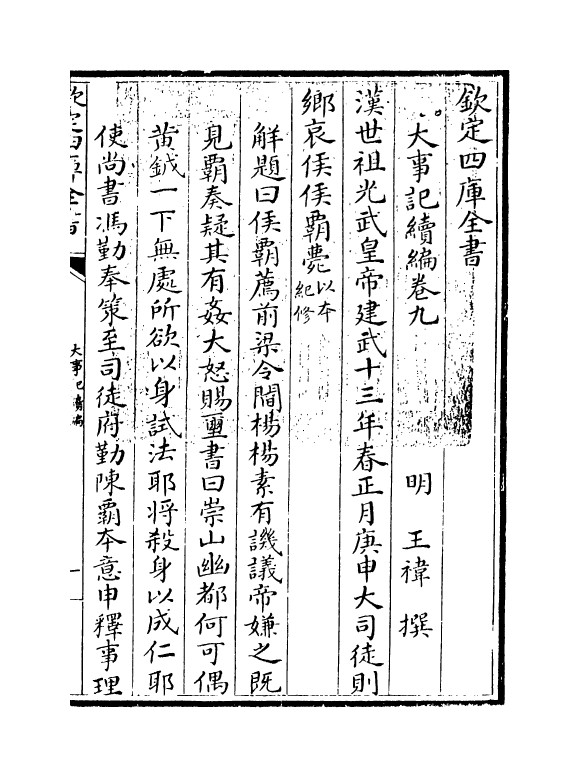 欽定四庫全書
大事記續編卷九
明 王禕 撰
漢世祖光武皇帝建武十三年春正月庚申大司徒則
鄉哀侯侯霸薨以本紀修
解題曰侯霸薦前梁令閻楊楊素有譏議帝嫌之既
見霸奏疑其有姦大怒賜璽書曰崇山幽都何可偶
黄鉞一下無處所欲以身試法耶將殺身以成仁耶
使尚書馮勤奉策至司徒府勤陳霸本意申釋事理
欽定四庫全書
大事記續編
一